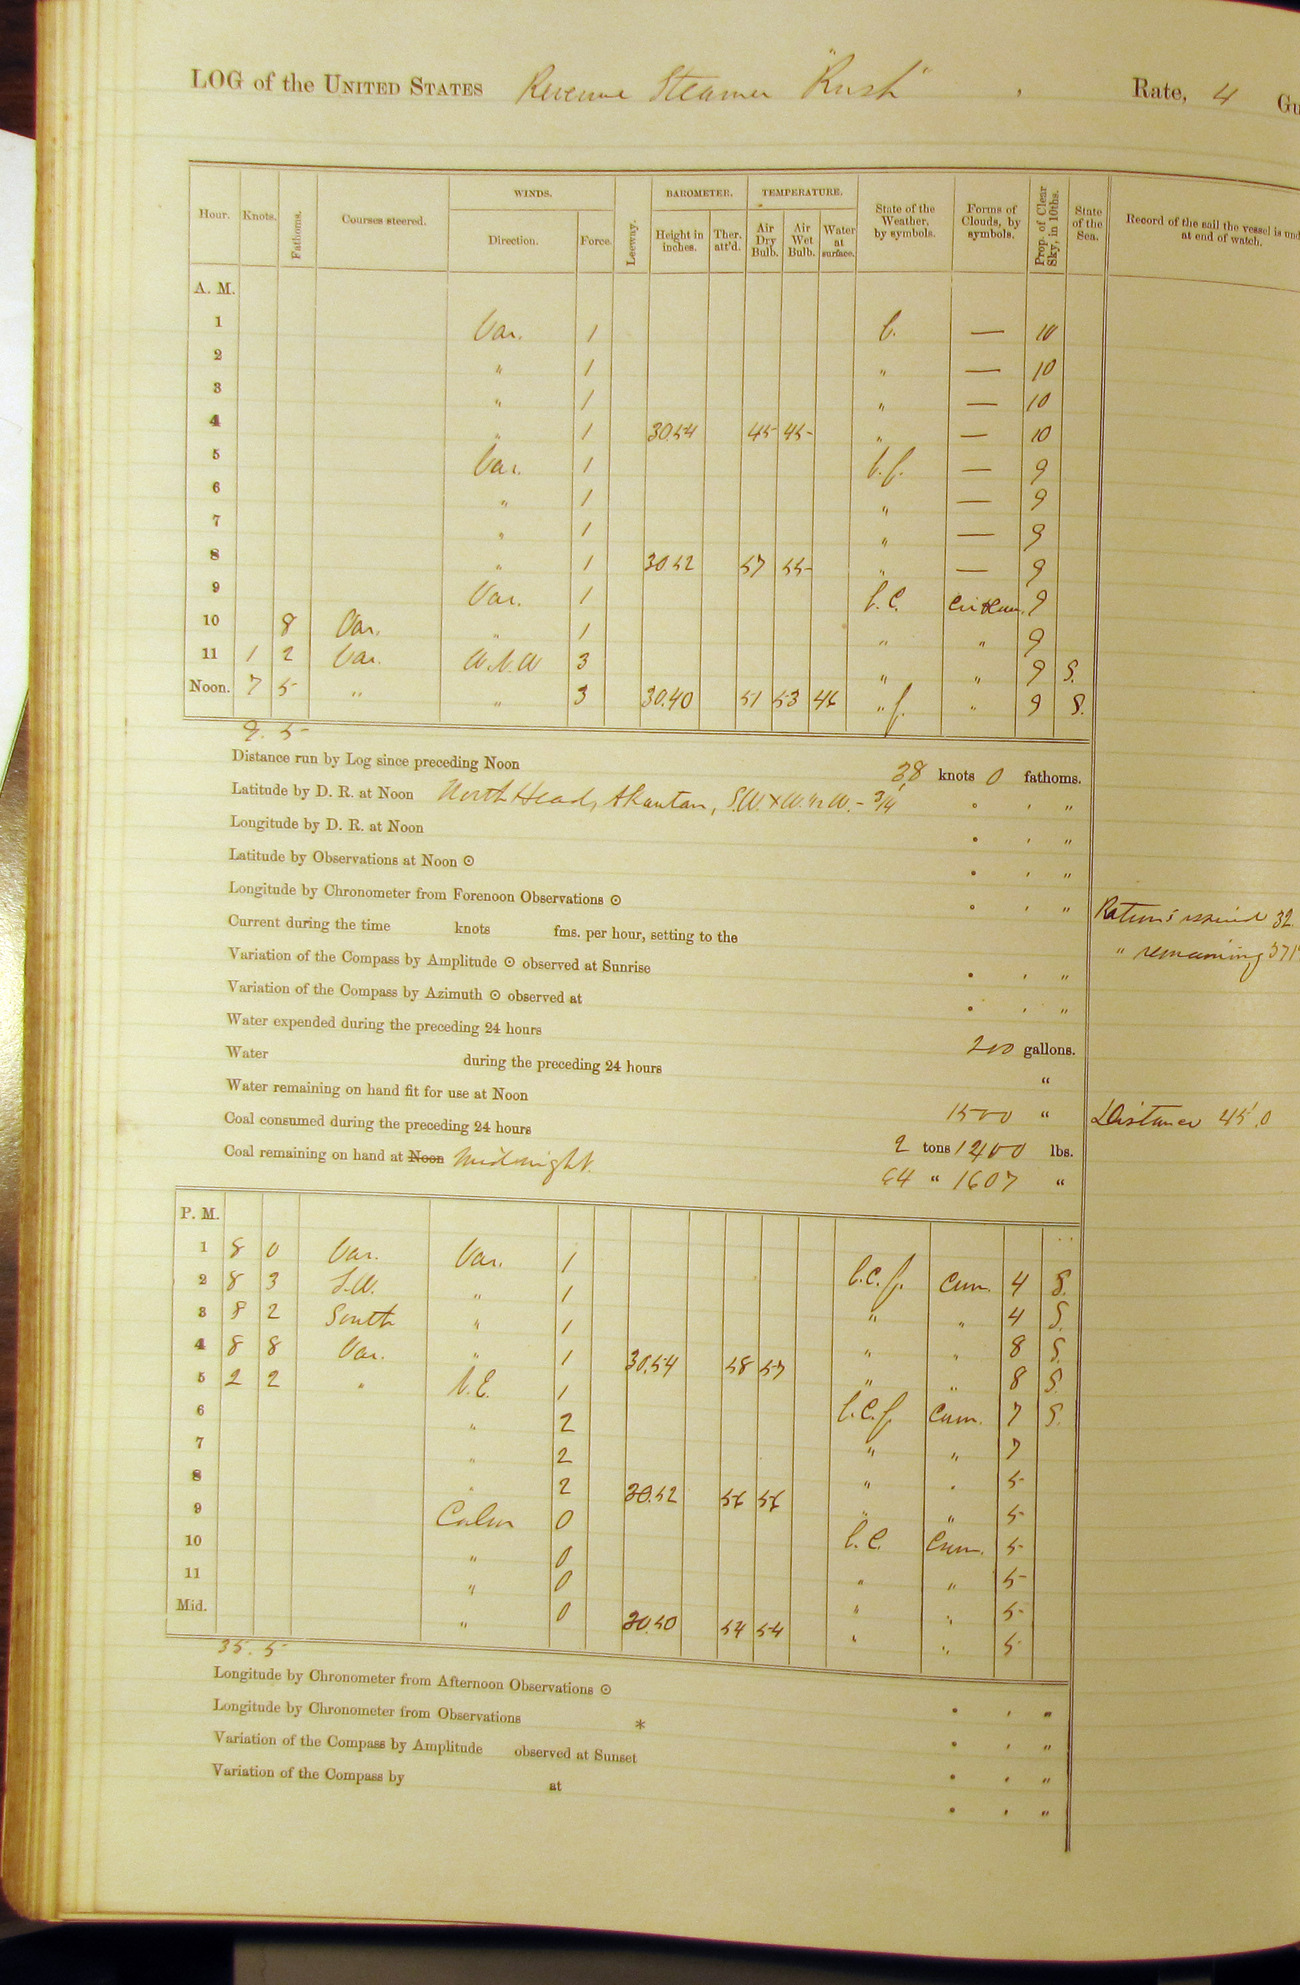 LOG of the UNITED STATES Revenue Steamer "Rush", Rate, 4 Gu
Hour. Knots. Fathoms. Courses steered. WINDS. Direction. Force. Leeway. BAROMETER. Height in inches. Ther. att'd. TEMPERATURE. Air Dry Bulb. Air Wet Bulb. Water at surface. State of the Weather, by symbols. Forms of Clouds, by symbols. Prop. of Clear Sky, in 10ths. State of the Sea. Record of the sail the vessel is und at end of watch.
A. M.
1 Var. 1 b. — 10
2 " 1 " — 10
3 " 1 " — 10
4 " 1 30.54 45 45 " — 10
5 Var. 1 b.f. — 9
6 " 1 " — 9
7 " 1 " — 9
8 " 1 30.52 57 55 " — 9
9 Var. 1 b.c. Cir Cum. 9
10 8 Var. " 1 " " 9
11 1 2 Var. W.N.W 3 " " 9 S.
Noon. 7 5 " " 3 30.40 51 53 46 " f. " 9 S.
9. 5
Distance run by Log since preceding Noon 38 knots 0 fathoms.
Latitude by D. R. at Noon North Head, Akautan, S.W. x W. ½ W. - 3/4' ° ' "
Longitude by D. R. at Noon ° ' "
Latitude by Observations at Noon ⊙ ° ' "
Longitude by Chronometer from Forenoon Observations ⊙ ° ' "
Rations issued 32
Current during the time knots fms. per hour, setting to the
" remaining 371
Variation of the Compass by Amplitude ⊙ observed at Sunrise ° ' "
Variation of the Compass by Azimuth ⊙ observed at ° ' "
Water expended during the preceding 24 hours 200 gallons.
Water during the preceding 24 hours "
Water remaining on hand fit for use at Noon 1500 "
Distance 45'.0
Coal consumed during the preceding 24 hours 2 tons 1400 lbs.
Coal remaining on hand at Noon Midnight. 64 " 1607 "
P. M.
1 8 0 Var. Var. 1 b.c.f. Cum. 4 S.
2 8 3 S.W. " 1 " " 4 S.
3 8 2 South " 1 " " 8 S.
4 8 8 Var. " 1 30.54 58 57 " " 8 S.
5 2 2 " N.E. 1 b.c.f. Cum. 7 S.
6 " 2 " " 7
7 " 2 " " 5
8 " 2 30.52 56 56 " " 5
9 Calm 0 b.c. Cum. 5
10 " 0 " " 5
11 " 0 " " 5
Mid. " 0 30.50 54 54 " " 5
35. 5
Longitude by Chronometer from Afternoon Observations ⊙ ° ' "
Longitude by Chronometer from Observations * ° ' "
Variation of the Compass by Amplitude observed at Sunset ° ' "
Variation of the Compass by at ° ' "